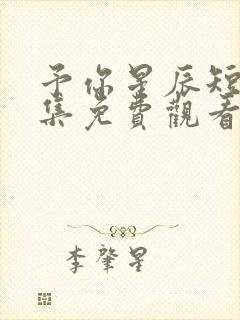 予你星辰短
集免費觀看
李肇星